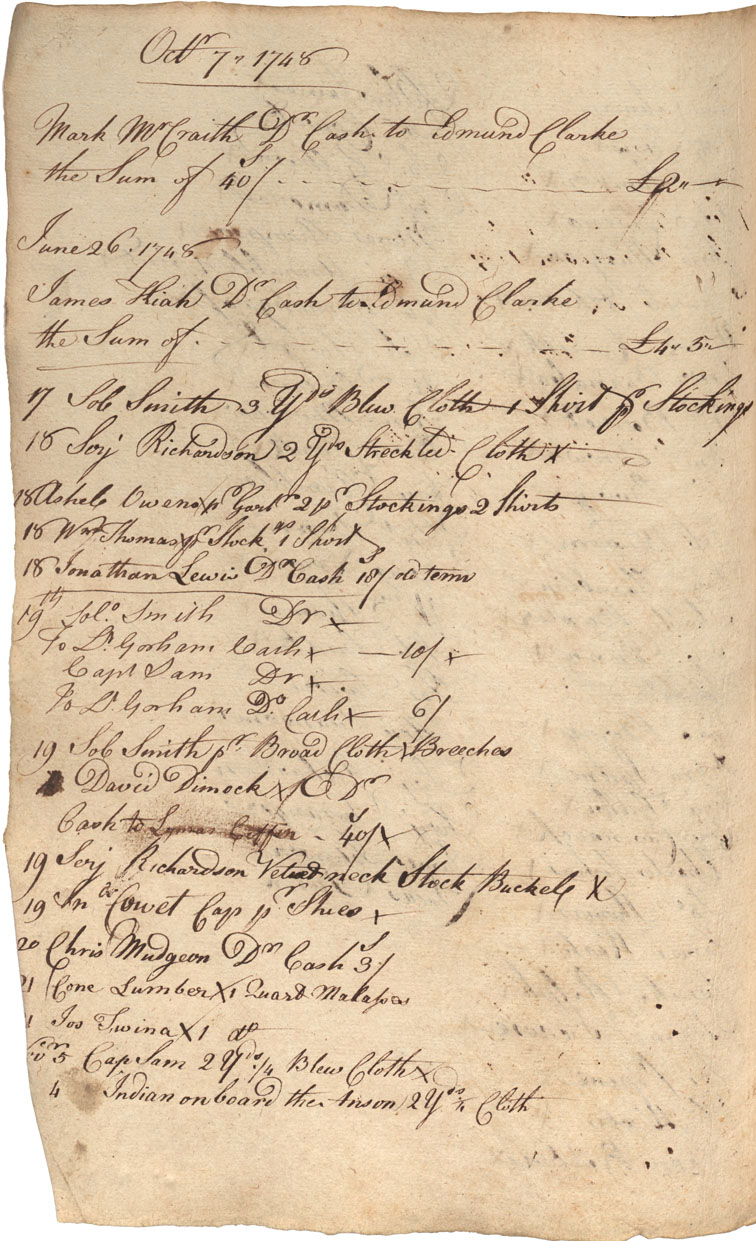 Octr 7 1748
Mark McCraith Dr Cash to Edmund Clarke
the Sum of 40/ £2
June 26. 1748
James Hiah Dr Cash to Edmund Clarke
the Sum of £4 5
17 Sob Smith 3 Yds Blew Cloth 1 Shirt pr Stockings
18 Serj Richardson 2 Yds Streckled Cloth X
18 Ashel Owens X pr Gartrs 2 pr Stockings 2 Shirts
18 Wm Thomas pr Stockngs 1 Shirt
18 Jonathan Lewis Dr Cash 18/ old tenor
19th Solo Smith Dr X
To Lt Gorham Cash X — 10/ X
Capt Sam Dr X
To Lt Gorham Do Cash X 6/
19 Sob Smith pr Broad Cloth X Breeches
David Dimock X Dr
Cash to Lyman Coffin 40/ X
19 Serj Richardson Velvet neck Stock Buckele X
19 Cowet Cap pr Shues X
20 Chris Mudgeon Dr Cash 3/
21 Cone Lumber X 1 Quart Malases
Jos Twina X 1 do
5 Cap Sam 2 Yds 1/4 Blew Cloth X
4 Indian on board the Anson 2 Yds Cloth